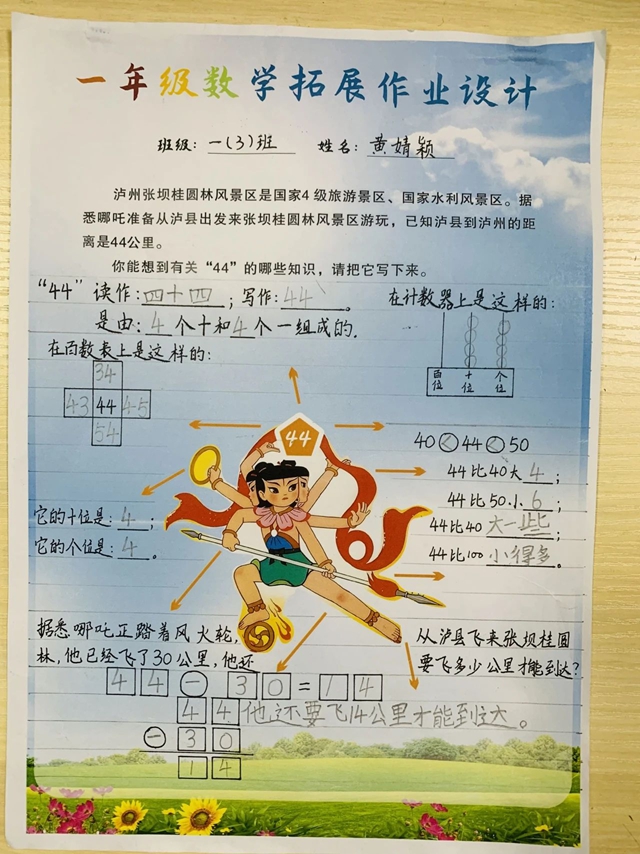 一年级数学拓展作业设计
班级：一(3)班 姓名：黄婧颖
泸州张坝桂圆林风景区是国家4级旅游景区、国家水利风景区。据
悉哪吒准备从泸县出发来张坝桂圆林风景区游玩，已知泸县到泸州的距
离是44公里。
你能想到有关“44”的哪些知识，请把它写下来。
“44”读作：四十四；写作：44。
是由：4个十和4个一组成的.
在计数器上是这样的：
百位 十位 个位
在百数表上是这样的：
34
43 44 45
54
44
40<44<50
44比40大4；
44比50小6；
44比40大一些；
44比100小得多。
它的十位是：4；
它的个位是：4。
据悉哪吒正踏着风火轮，从泸县飞来张坝桂圆
林，他已经飞了30公里，他还要飞多少公里才能到达？
44－30=14
44
－30
14
他还要飞14公里才能到达。